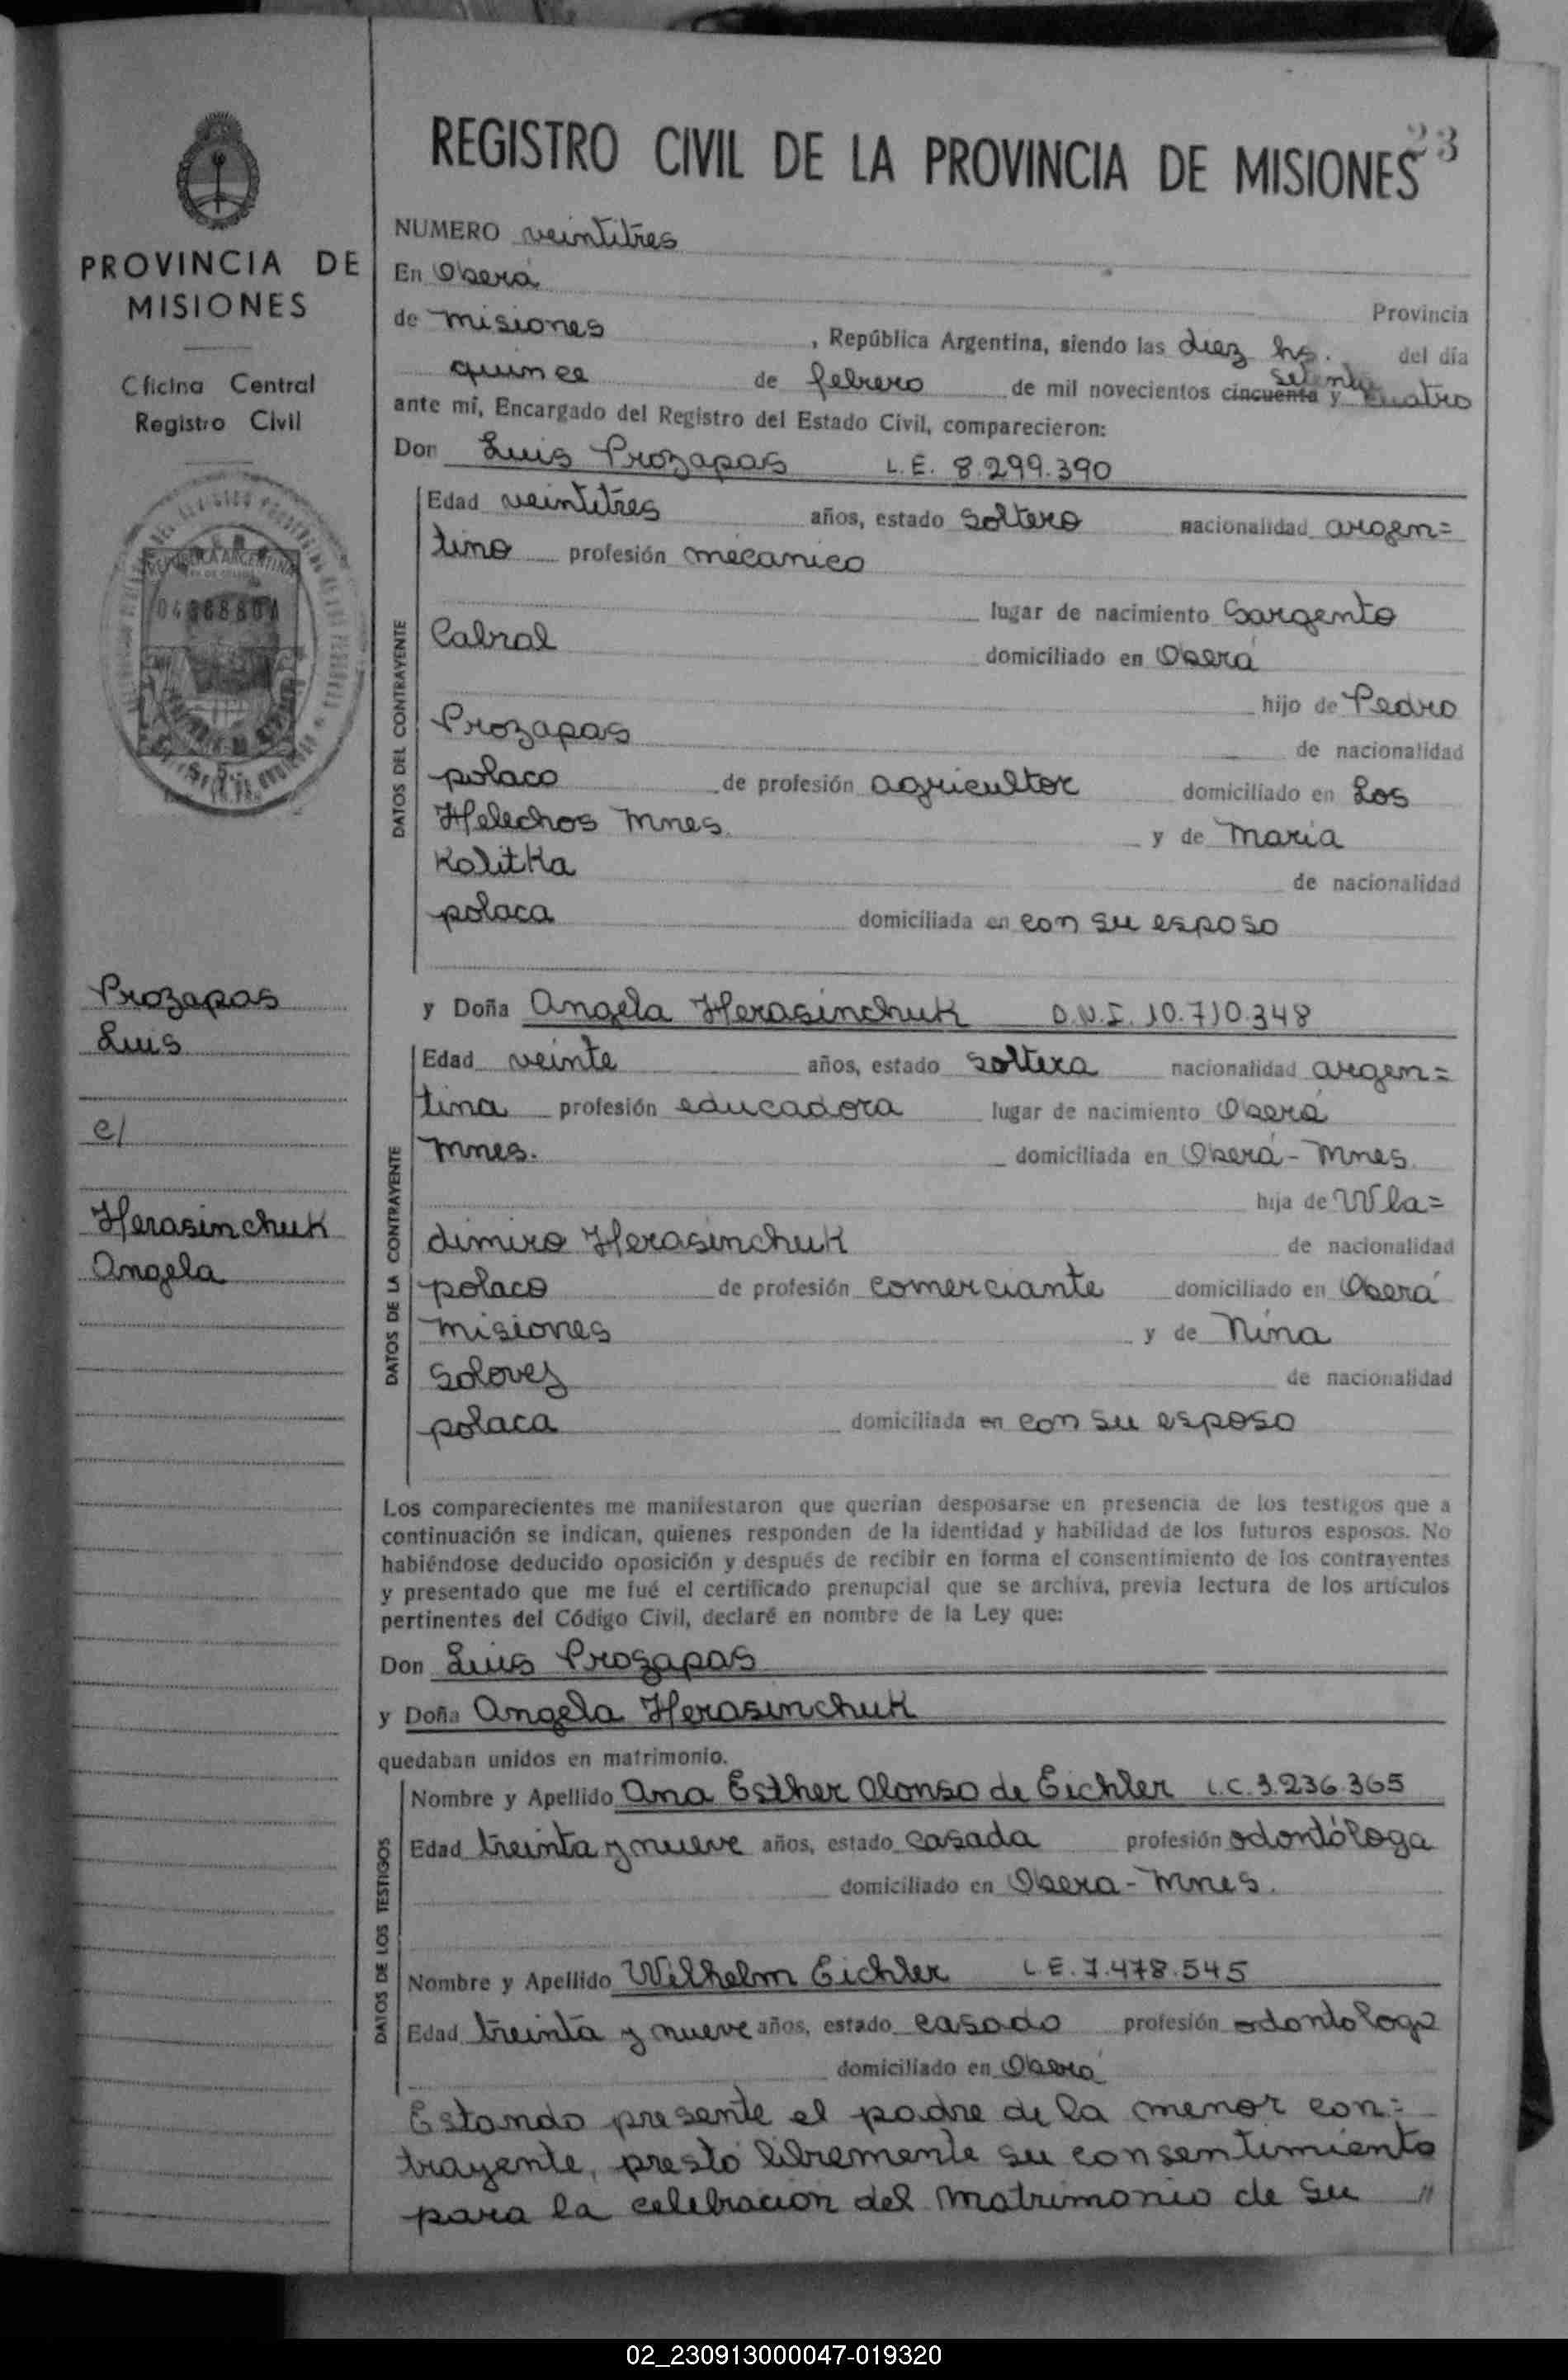 PROVINCIA DE
MISIONES
Oficina Central
Registro Civil
REPUBLICA ARGENTINA
Prozapas
Luis
c/
Herasinchuk
Angela
23
REGISTRO CIVIL DE LA PROVINCIA DE MISIONES
NUMERO veintitres
En Oberá
Provincia
de Misiones , República Argentina, siendo las diez hs. del día
quince de febrero de mil novecientos cincuenta setenta y cuatro
ante mí, Encargado del Registro del Estado Civil, comparecieron:
Don Luis Prozapas L.E. 8.299.390
DATOS DEL CONTRAYENTE
Edad veintitres años, estado soltero nacionalidad argen=
tino profesión mecanico
lugar de nacimiento Sargento
Cabral domiciliado en Oberá
hijo de Pedro
Prozapas de nacionalidad
polaco de profesión agricultor domiciliado en Los
Helechos Mnes. y de Maria
Kolitka de nacionalidad
polaca domiciliada en con su esposo
y Doña Angela Herasinchuk D.N.I. 10.710.348
DATOS DE LA CONTRAYENTE
Edad veinte años, estado soltera nacionalidad argen=
tina profesión educadora lugar de nacimiento Oberá
Mnes. domiciliada en Oberá - Mnes.
hija de Wla=
dimiro Herasinchuk de nacionalidad
polaco de profesión comerciante domiciliado en Oberá
Misiones y de Nina
Solovez de nacionalidad
polaca domiciliada en con su esposo
Los comparecientes me manifestaron que querían desposarse en presencia de los testigos que a
continuación se indican, quienes responden de la identidad y habilidad de los futuros esposos. No
habiéndose deducido oposición y después de recibir en forma el consentimiento de los contrayentes
y presentado que me fué el certificado prenupcial que se archiva, previa lectura de los artículos
pertinentes del Código Civil, declaré en nombre de la Ley que:
Don Luis Prozapas
y Doña Angela Herasinchuk
quedaban unidos en matrimonio.
DATOS DE LOS TESTIGOS
Nombre y Apellido Ana Esther Alonso de Eichler L.C. 3.236.365
Edad treinta y nueve años, estado casada profesión odontóloga
domiciliado en Obera - Mnes.
Nombre y Apellido Wilhelm Eichler L.E. 7.478.545
Edad treinta y nueve años, estado casado profesión odontologo
domiciliado en Oberá
Estando presente el padre de la menor con=
trayente, prestó libremente su consentimiento
para la celebracion del matrimonio de su "
02_230913000047-019320